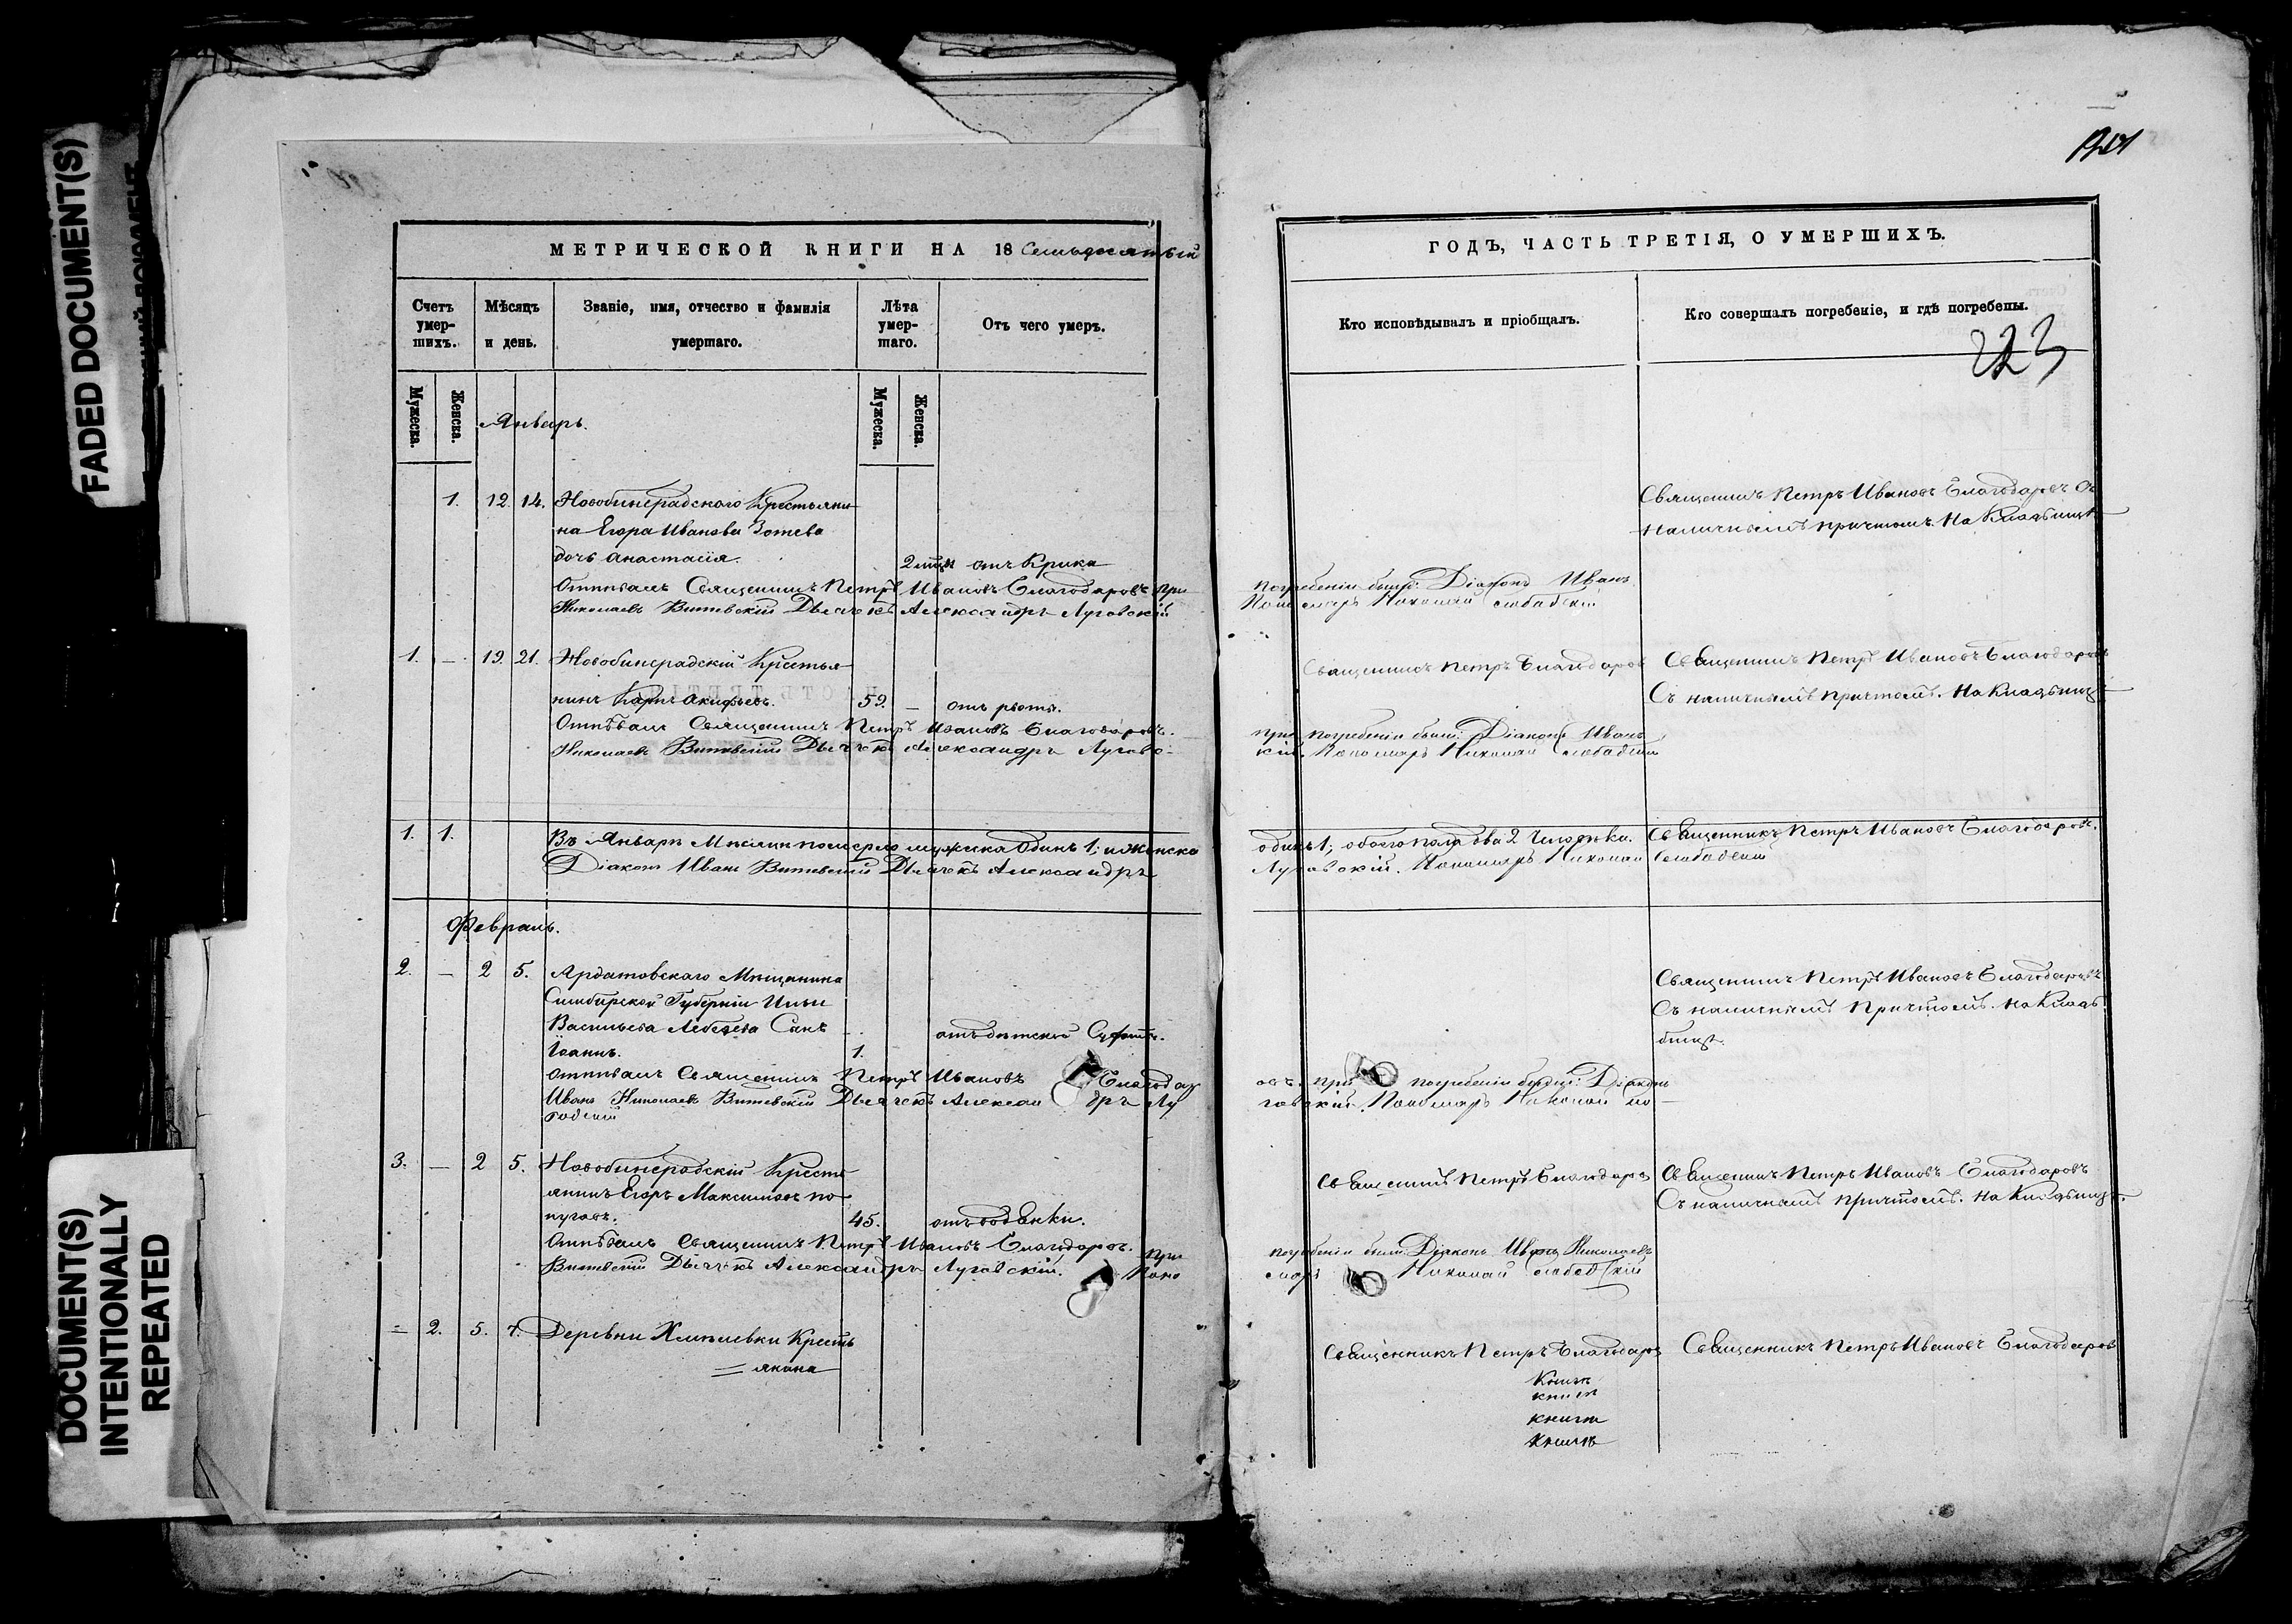 FADED DOCUMENT(S)
DOCUMENT(S)
INTENTIONALLY
REPEATED
МЕТРИЧЕСКОЙ КНИГИ НА 18 Семьдесятый
Счетъ умер-шихъ.
Мѣсяцъ и день.
Званіе, имя, отчество и фамилія умершаго.
Лѣта умер-шаго.
Отъ чего умеръ.
Мужеска.
Женска.
Мужеска.
Женска.
Январь.
1. 12. 14. Новобинерадского Крестьяни-
на Егора Иванова Зотева
дочь Анастасія. отъ Крика
Отпѣвалъ Священникъ Петръ Ивановъ Благодаровъ при
Николаевъ Витевскій Дьячекъ Александръ Луговскій
1. — 19. 21. Новобинерадскій Крестья-
нинъ Карпъ Акифьевъ. 59. — отъ рвоты.
Отпѣвалъ Священникъ Петръ Ивановъ Благодаровъ.
Николаевъ Витевскій Дьячекъ Александръ Луговс-
1. 1. Въ Январѣ Мѣсяцѣ померло мужска Одинъ 1; и Женска
Діаконъ Иванъ Витевскій Дьячекъ Александръ
Февраль.
2. — 2 5. Ардатовского Мѣщанина
Симбирской Губерніи Ильи
Васильева Лебедева Сынъ
Іоаннъ. 1. отъ дѣтской
Отпѣвалъ Священникъ Петръ Ивановъ Благодар
Иванъ Николаевъ Витевскій Дьячекъ Александръ Лу
3. — 2 5. Новобинерадскій Кресть-
янинъ Егоръ Максимовъ По-
пуговъ. 45. отъ водянки.
Отпѣвалъ Священникъ Петръ Ивановъ Благодаровъ. При
Витевскій Дьячекъ Александръ Луговскій. Поно
2. 5. 7. Деревни Хмѣлевки Кресть
янина
ГОДЪ, ЧАСТЬ ТРЕТІЯ, О УМЕРШИХЪ.
Кто исповѣдывалъ и пріобщалъ.
Кто совершалъ погребеніе, и гдѣ погребены.
223
Священникъ Петръ Ивановъ Благодаровъ Съ
наличнымъ причтомъ. На Кладбищѣ
погребеніи были: Діаконъ Иванъ
Пономарь Николай Слободскій
Священникъ Петръ Благодаровъ
Священникъ Петръ Ивановъ Благодаровъ
Съ наличнымъ причтомъ. На Кладбищѣ
при погребеніи были: Діаконъ Иванъ
кій. Пономарь Николай Слободскій
одинъ 1; обоего пола два 2 Человѣка. Священникъ Петръ Ивановъ Благодаровъ.
Луговскій. Пономарь Николай Слободскій
Священникъ Петръ Ивановъ Благодаровъ
Съ наличнымъ Причтомъ. На Клад-
бищѣ.
овъ. при погребеніи были: Діаконъ
говскій. Пономарь Николай Сло-
Священникъ Петръ Благодаровъ
Священникъ Петръ Ивановъ Благодаровъ
Съ наличнымъ причтомъ. На Кладбищѣ.
погребеніи были: Діаконъ Иванъ Николаевъ
марь Николай Слободскій
Священникъ Петръ Благодаровъ
Священникъ Петръ Ивановъ Благодаровъ